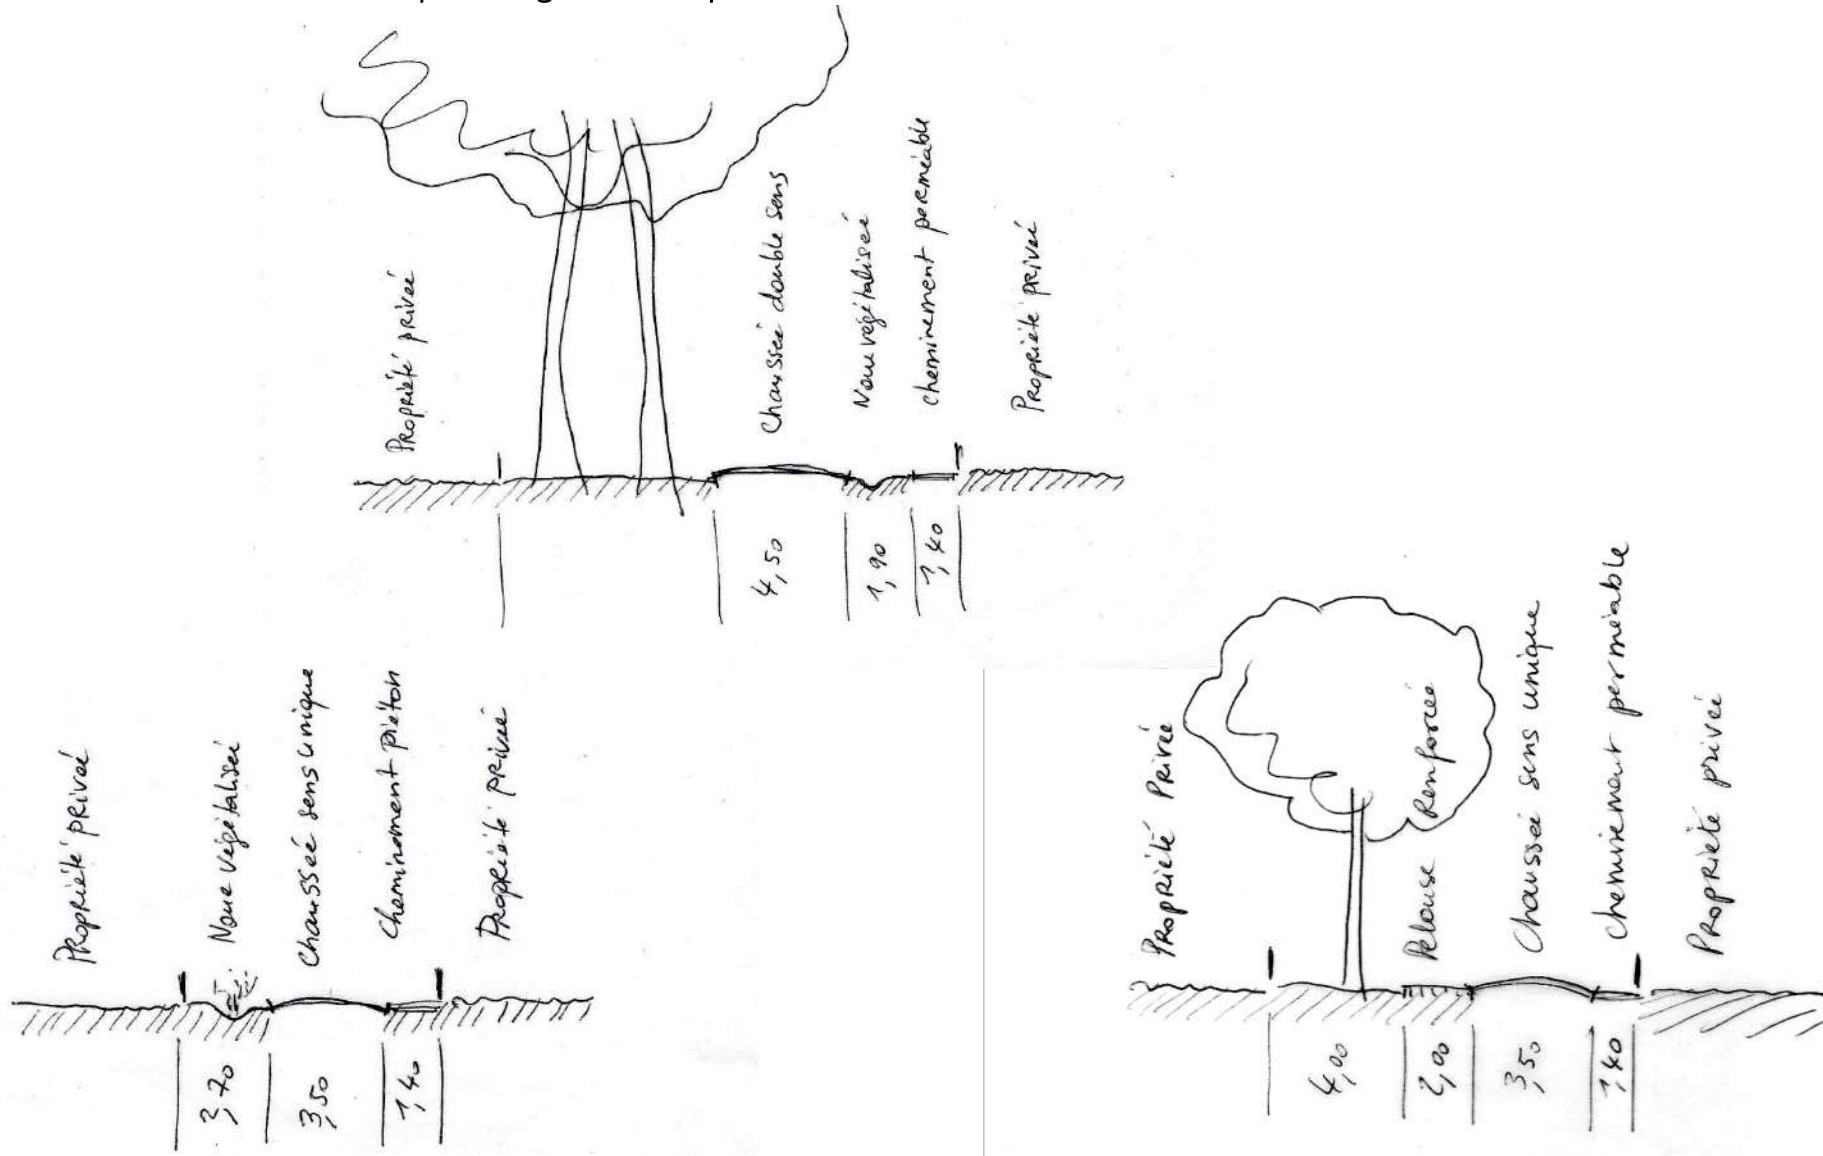 Propriété privée
Chaussée double sens
Noue végétalisée
cheminement perméable
Propriété privée
4,50
1,90
1,40
Propriété privée
Noue végétalisée
chaussée sens unique
Cheminement piéton
Propriété privée
2,70
3,50
1,40
Propriété Privée
Pelouse Renforcée
Chaussée sens unique
cheminement perméable
Propriété privée
4,00
2,00
3,50
1,40